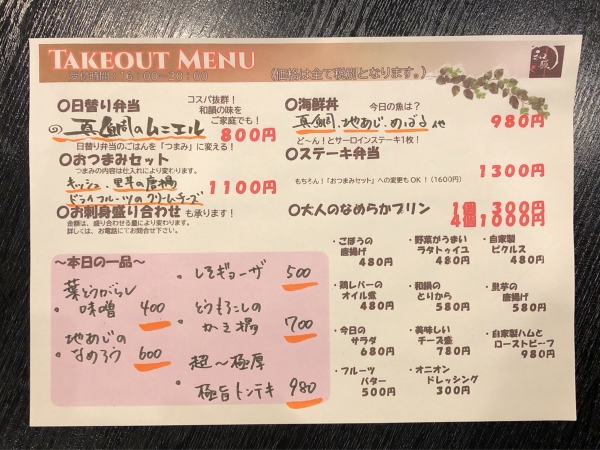 TAKEOUT MENU
受付時間:16:00~20:00
(価格は全て税別となります。)
和韻
〇日替り弁当
コスパ抜群!
和韻の味を
ご家庭でも!
真鯛のムニエル
800円
日替り弁当のごはんを「つまみ」に変える!
〇おつまみセット
つまみの内容は仕入れにより変わります。
キッシュ、里芋の唐揚
ドライフルーツのクリームチーズ
1100円
〇お刺身盛り合わせ も承ります!
金額は、盛り合わせる量により変わります。
詳しくは、お電話にてお問合せ下さい。
〇海鮮丼
今日の魚は?
真鯛、地あじ、めばる 他
980円
ど~ん!とサーロインステーキ1枚!
〇ステーキ弁当
1300円
もちろん!「おつまみセット」への変更もOK!(1600円)
〇大人のなめらかプリン
1個 300円
4個1000円
~本日の一品~
葉とうがらし
味噌 400
地あじの
・なめろう 600
・しそギョーザ 500
・とうもろこしの
かき揚 700
・超~極厚
極旨トンテキ 980
・ごぼうの
唐揚げ
480円
・野菜がうまい
ラタトゥイユ
480円
・自家製
ピクルス
480円
・鶏レバーの
オイル煮
480円
・和韻の
とりから
580円
・里芋の
唐揚げ
580円
・今日の
サラダ
680円
・美味しい
チーズ盛
780円
・自家製ハムと
ローストビーフ
980円
・フルーツ
バター
500円
・オニオン
ドレッシング
300円